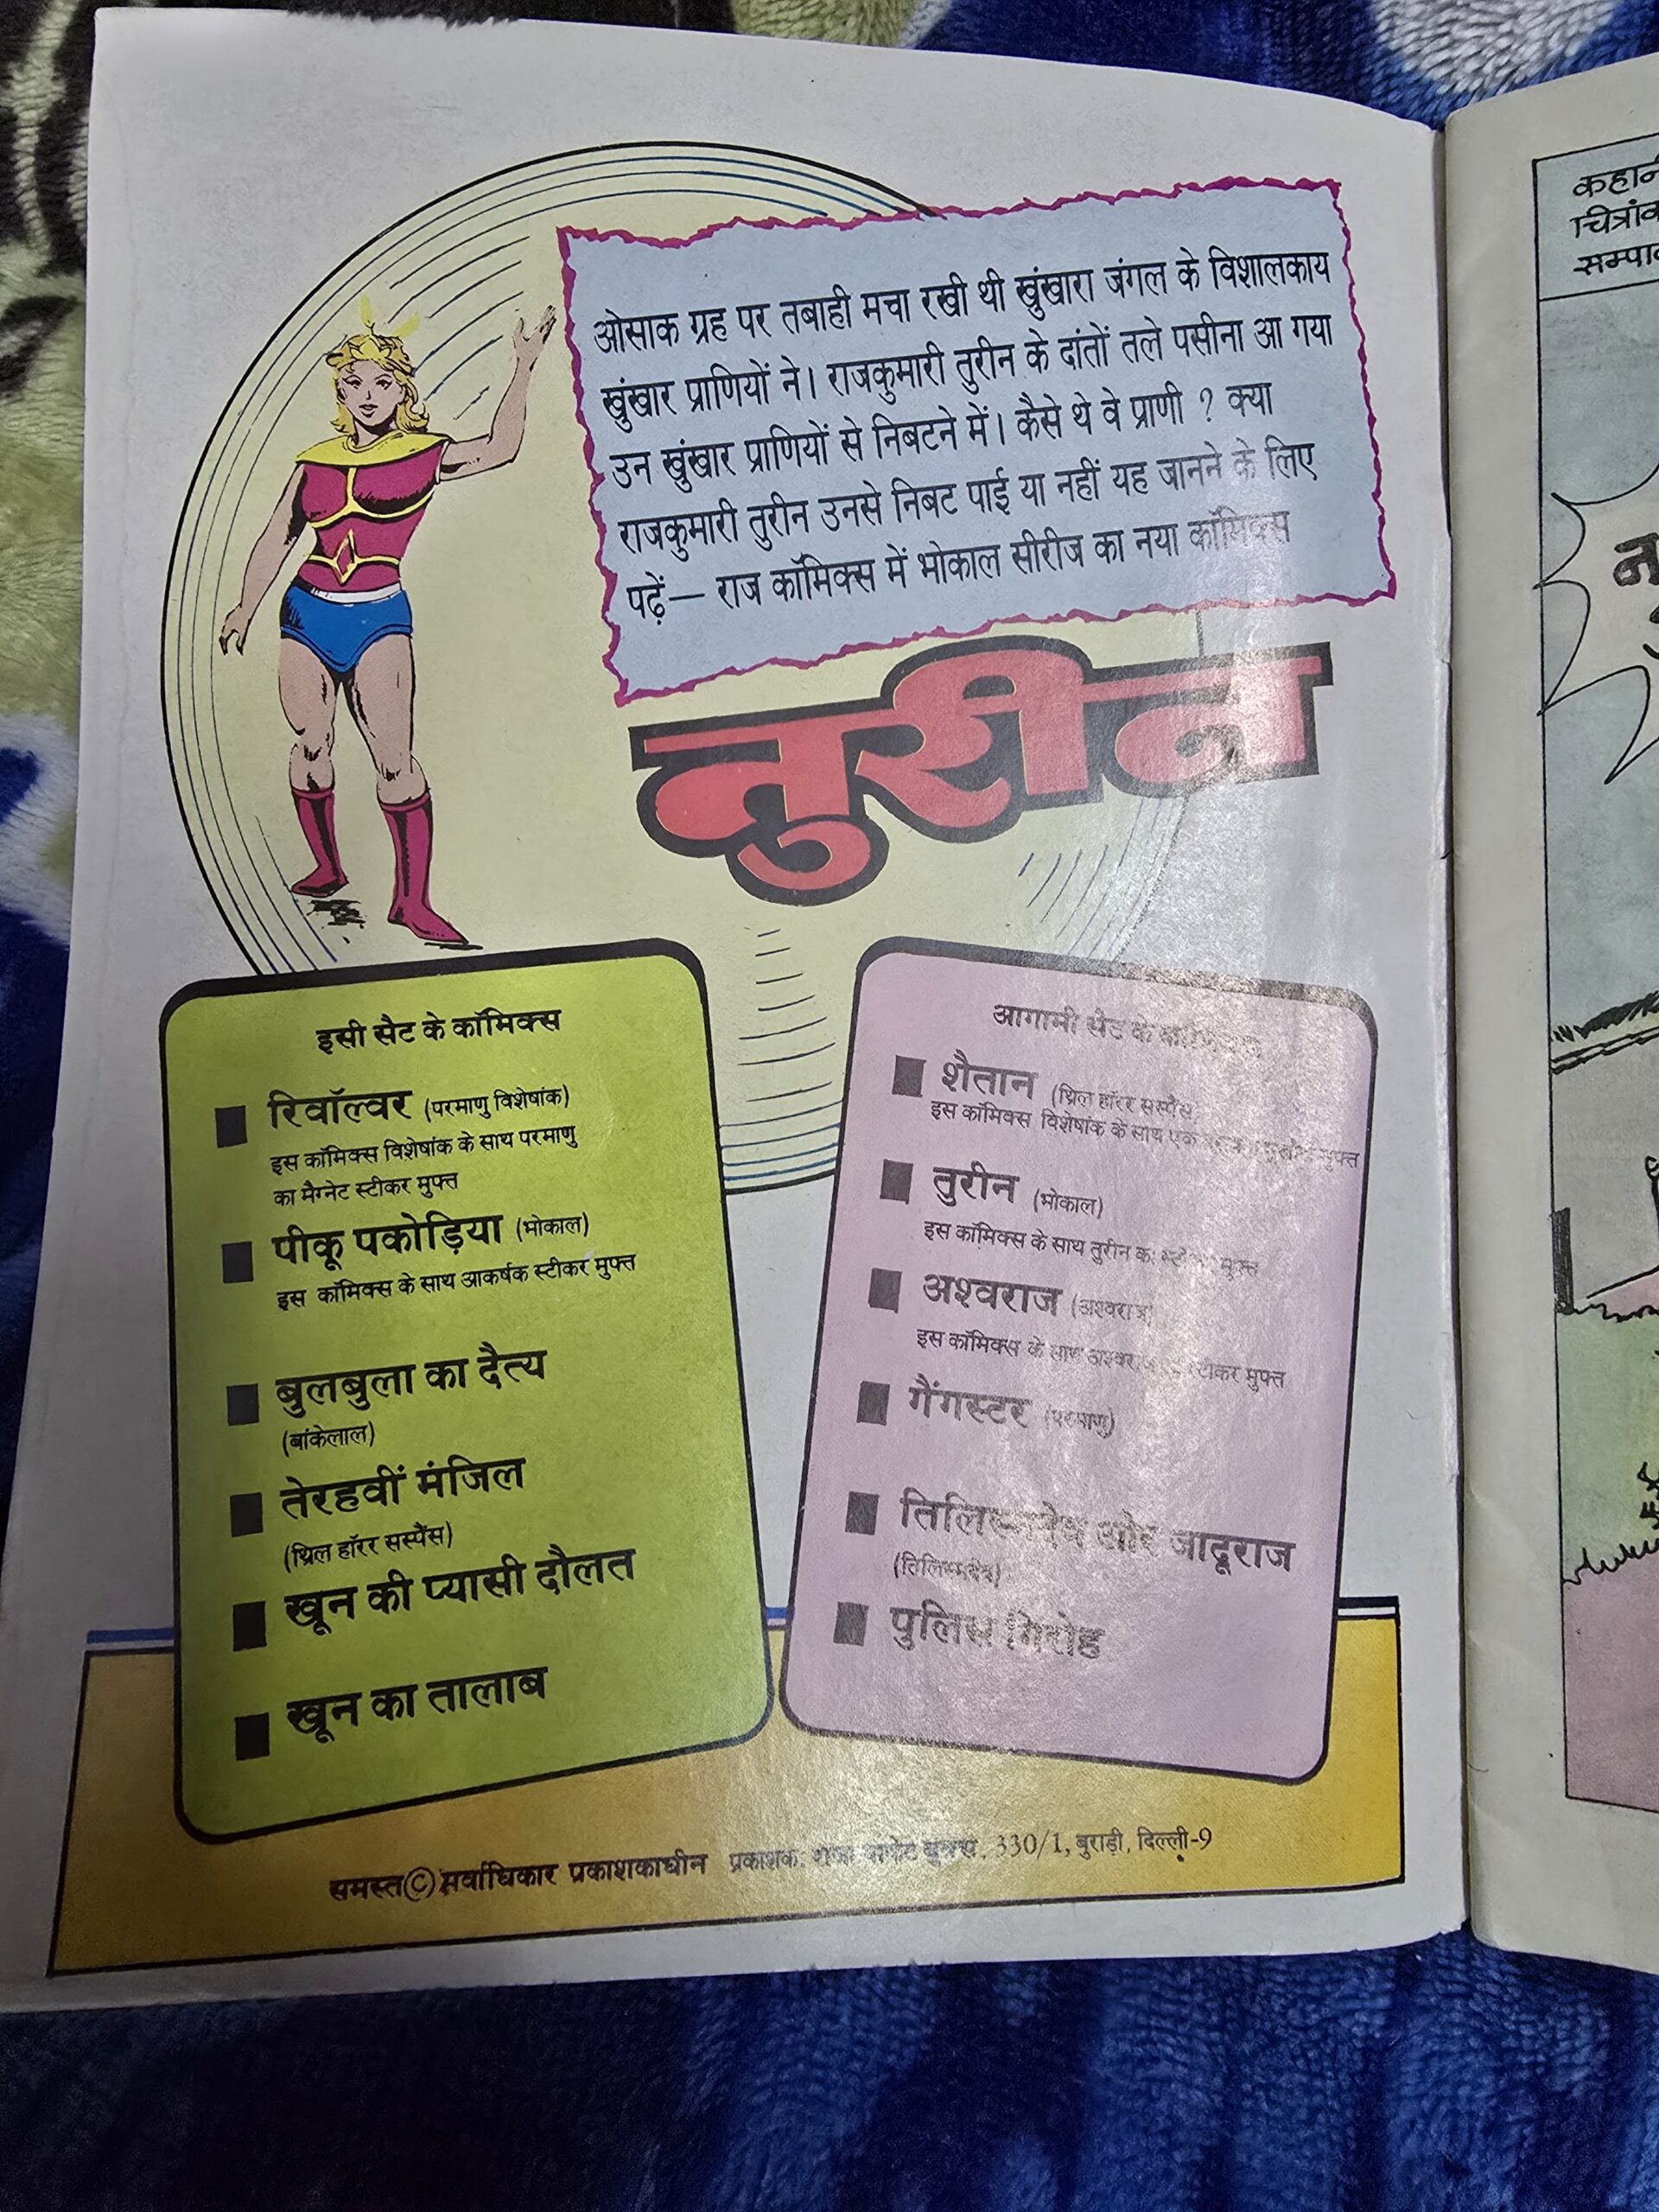 ओसाक ग्रह पर तबाही मचा रखी थी खुंखारा जंगल के विशालकाय
खुंखार प्राणियों ने। राजकुमारी तुरीन के दांतों तले पसीना आ गया
उन खुंखार प्राणियों से निबटने में। कैसे थे वे प्राणी ? क्या
राजकुमारी तुरीन उनसे निबट पाई या नहीं यह जानने के लिए
पढ़ें— राज कॉमिक्स में भोकाल सीरीज का नया कॉमिक्स
तुरीन
इसी सैट के कॉमिक्स
रिवॉल्वर (परमाणु विशेषांक)
इस कॉमिक्स विशेषांक के साथ परमाणु
का मैग्नेट स्टीकर मुफ्त
पीकू पकोड़िया (भोकाल)
इस कॉमिक्स के साथ आकर्षक स्टीकर मुफ्त
बुलबुला का दैत्य
(बांकेलाल)
तेरहवीं मंजिल
(थ्रिल हॉरर सस्पैंस)
खून की प्यासी दौलत
खून का तालाब
आगामी सैट के
शैतान (थ्रिल हॉरर सस्पैंस)
इस कॉमिक्स विशेषांक के साथ एक मुफ्त
तुरीन (भोकाल)
इस कॉमिक्स के साथ तुरीन का मुफ्त
अश्वराज (अश्वराज)
इस कॉमिक्स के साथ स्टीकर मुफ्त
गैंगस्टर (परमाणु)
और जादूराज
पुलिस गिरोह
समस्त © सर्वाधिकार प्रकाशकाधीन प्रकाशक: 330/1, बुराड़ी, दिल्ली-9
कहानी